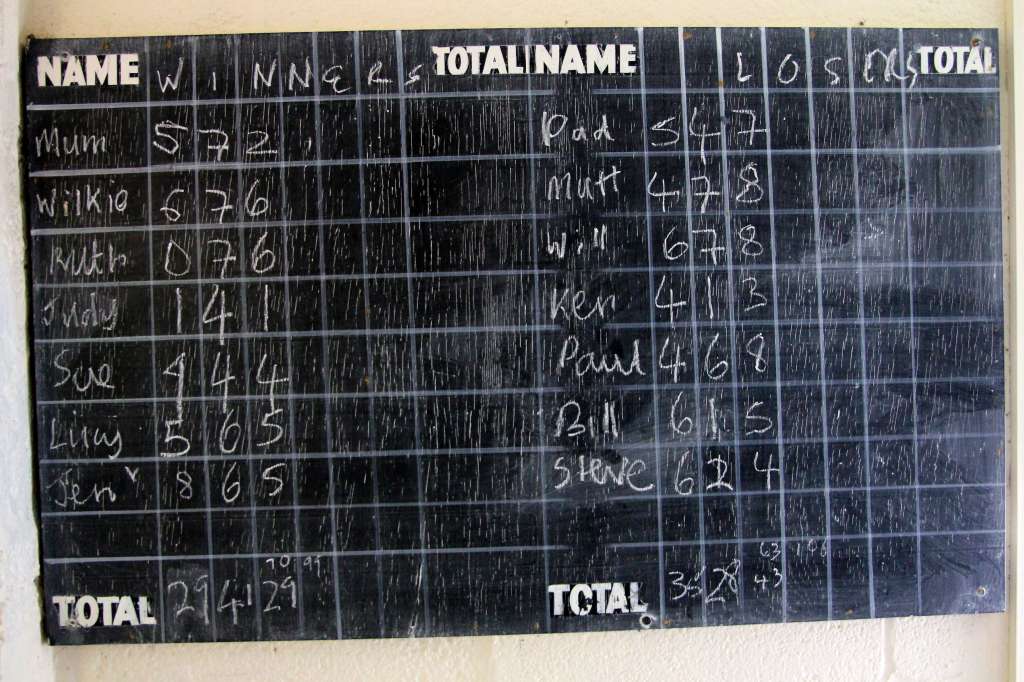 NAME W I N N E R S TOTAL NAME L O S E R S TOTAL
Mum 5 7 2 Dad 5 4 7
Wilkie 6 7 6 Mutt 4 7 8
Ruth 0 7 6 Will 6 7 8
Judy 1 4 1 Ken 4 1 3
Sue 4 4 4 Paul 4 6 8
Lucy 5 6 5 Bill 6 1 5
Jen 8 6 5 Steve 6 2 4
70 99 63 106
TOTAL 29 41 29 TOTAL 35 28 43